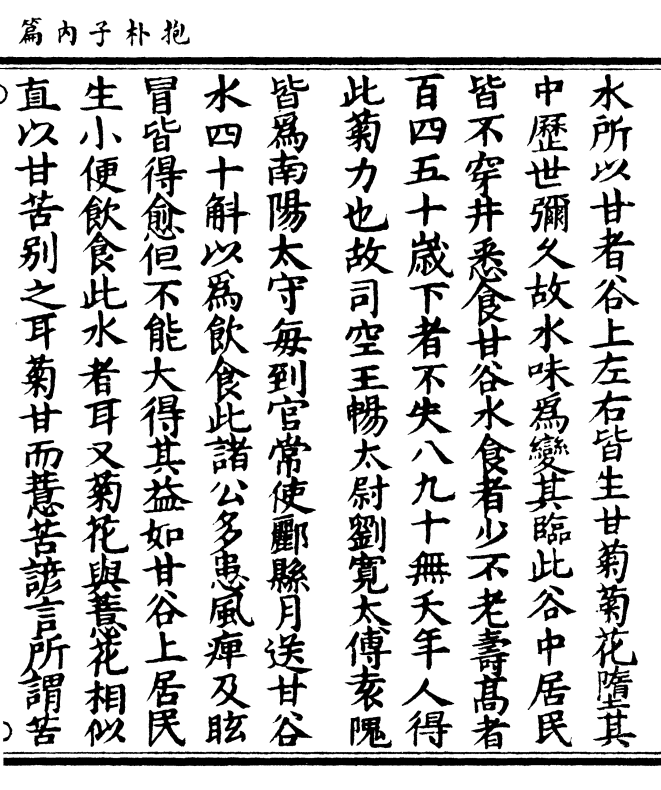 抱朴子内篇
水所以甘者谷上左右皆生甘菊菊花墮其
中歷世彌久故水味爲變其臨此谷中居民
皆不穿井悉食甘谷水食者少不老壽高者
百四五十歲下者不失八九十無夭年人得
此菊力也故司空王暢太尉劉寬太傅袁隗
皆爲南陽太守每到官常使酈縣月送甘谷
水四十斛以爲飲食此諸公多患風痺及眩
冒皆得愈但不能大得其益如甘谷上居民
生小便飲食此水者耳又菊花與薏花相似
直以甘苦别之耳菊甘而薏苦諺言所謂苦